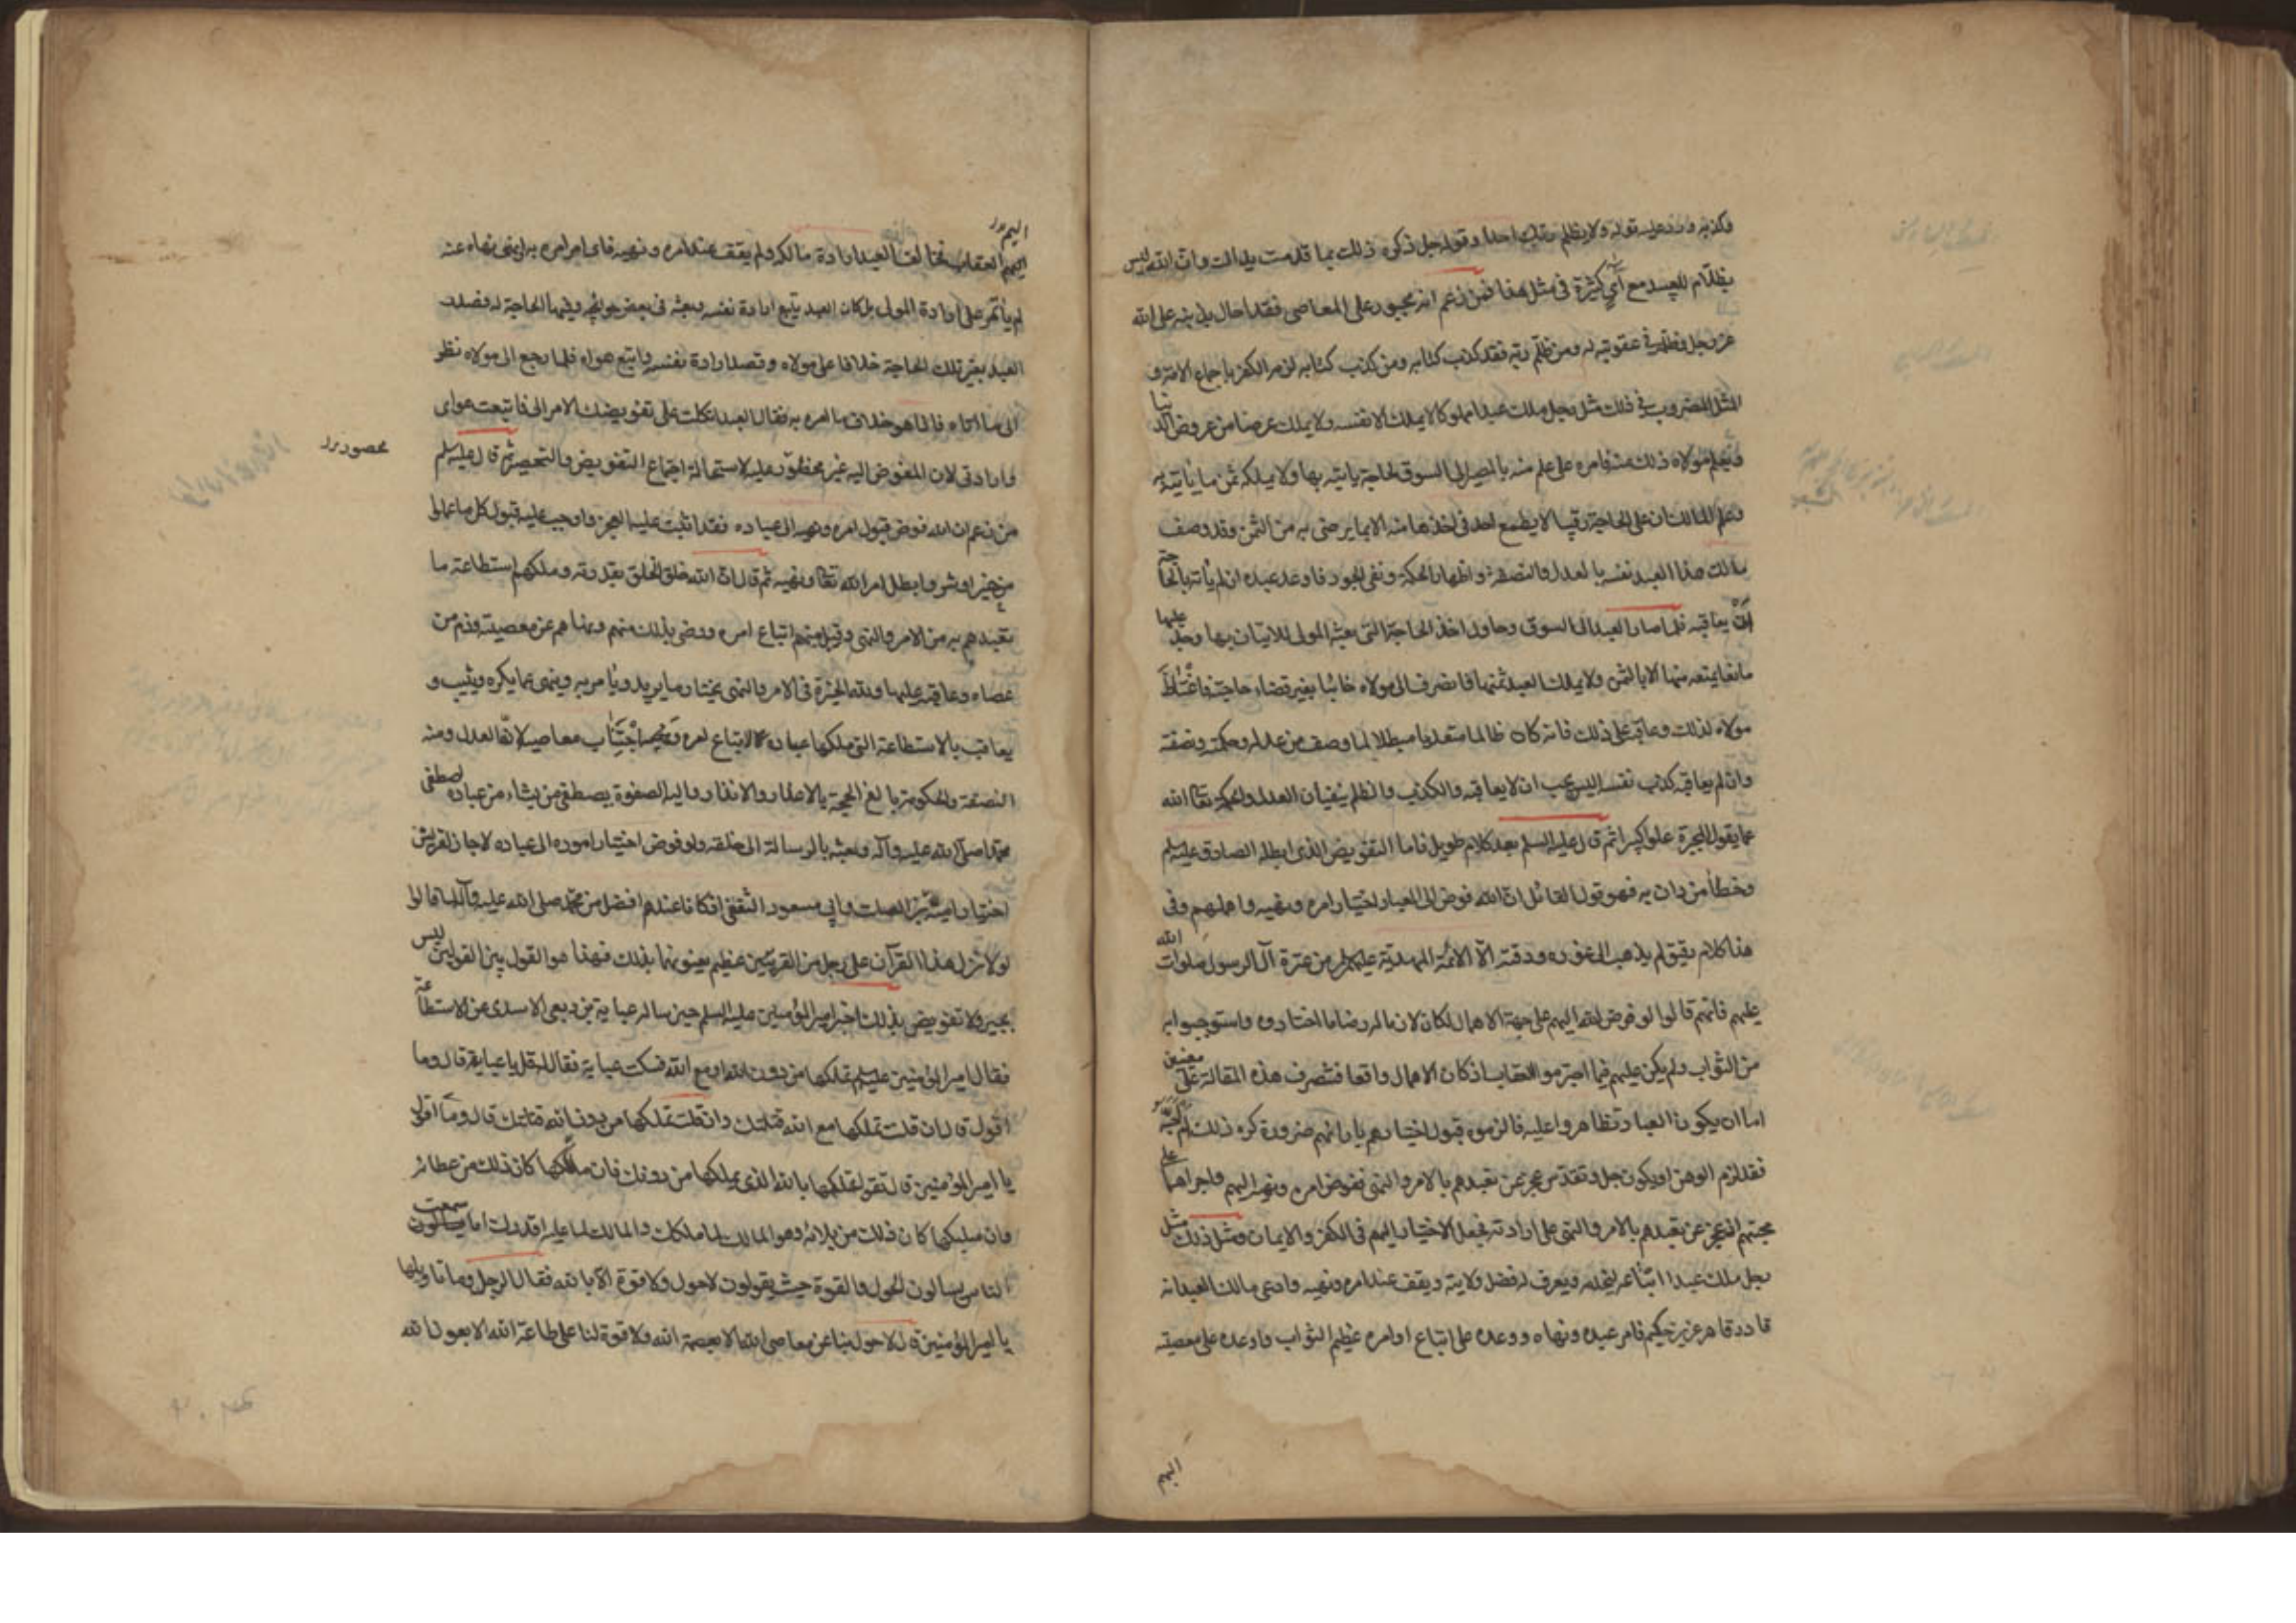 وكذبه ورد عليه قوله ولا يظلم ربك احدا وقوله جل ذكره ذلك بما قدمت يداك وان الله ليس
بظلّام للعبيد مع آي كثيرة في مثل هذا فمن زعم انه مجبور على المعاصي فقد احال بذنبه على الله
عز وجل وظلمه في عقوبته له ومن ظلم ربه فقد كذب كتابه ومن كذب كتابه لزمه الكفر باجماع الامة و
المثل المضروب في ذلك مثل رجل ملك عبدا مملوكا لا يملك الا نفسه ولا يملك عرضا من عروض الدنيا
ويعلم مولاه ذلك منه فامره على علم منه بالمصير الى السوق لحاجة ياتيه بها ولا يملكه ثمن ما ياتيه به
وعلم المالك ان على الحاجة رقيبا لا يطمع احد في اخذها منه الا بما يرضى به من الثمن وقد وصف
مالك هذا العبد نفسه بالعدل والنصفة واظهار الحكمة ونفي الجور فاوعد عبده ان لم ياته بالحاجة
ان يعاقبه فلما صار العبد الى السوق وحاول اخذ الحاجة التي بعثه المولى للاتيان بها وجد عليها
مانعا يمنعه منها الا بالثمن ولا يملك العبد ثمنها فانصرف الى مولاه خائبا بغير قضاء حاجته فاغتاظ
مولاه لذلك وعاقبه على ذلك فانه كان ظالما متعديا مبطلا لما وصف من عدله وحكمته ونصفته
وان لم يعاقبه كذب نفسه اليس يجب ان لا يعاقبه والكذب والظلم ينفيان العدل والحكمة تعالى الله
عما يقول المجبرة علوا كبيرا ثم قال عليه السلم بعد كلام طويل فاما التفويض الذي ابطله الصادق عليه السلم
وخطأ من دان به فهو قول القائل ان الله فوض الى العباد اختيار امره ونهيه واهملهم وفي
هذا كلام دقيق لم يذهب الى غوره ودقته الّا الائمة المهدية عليهم السلم من عترة آل الرسول صلوات الله
عليهم فانهم قالوا لو فوض الله اليهم على جهة الاهمال لكان لازما له رضا ما اختاروه واستوجبوا به
من الثواب ولم يكن عليهم فيما اجترموا العقاب اذ كان الاهمال واقعا فتنصرف هذه المقالة على معنيين
اما ان يكون العباد تظاهروا عليه فالزموه قبول اختيارهم بارائهم ضرورة كره ذلك ام احبّه
فقد لزم الوهن او يكون جل وتقدس عجز عن تعبدهم بالامر والنهي ففوض امره ونهيه اليهم واجراهما على
محبتهم اذ عجز عن تعبدهم بالامر والنهي على ارادته فجعل الاختيار اليهم في الكفر والايمان ومثل ذلك مثل
رجل ملك عبدا ابتاعه ليخدمه ويعرف له فضل ولايته ويقف عند امره ونهيه وادعى مالك العبد انه
قادر قاهر عزيز حكيم فامر عبده ونهاه ووعده على اتباع اوامره عظيم الثواب واوعده على معصيته
اليم
اليم
اليم العقاب فخالف العبد ارادة مالكه ولم يقف عند امره ونهيه فاي امر امره به او نهي نهاه عنه
لم ياتمر على ارادة المولى بل كان العبد يتبع ارادة نفسه وبعثه في بعض حوائجه وفيها الحاجة له فصدر
العبد بغير تلك الحاجة خلافا على مولاه وقصد ارادة نفسه واتبع هواه فلما رجع الى مولاه نظر
الى ما اتاه فاذا هو خلاف ما امره به فقال العبد اتكلت على تفويضك الامر الي فاتبعت هواي
وارادتي لان المفوض اليه غير محظور عليه لاستحالة اجتماع التفويض والتحصير ثم قال عليه السلم
محصور
من زعم ان الله فوض قبول امره ونهيه الى عباده فقد اثبت عليه العجز واوجب عليه قبول كل ما عملوا
من خير او شر وابطل امر الله تعالى ونهيه ثم قال ان الله خلق الخلق بقدرته وملكهم استطاعة ما
تعبدهم به من الامر والنهي وقبل منهم اتباع امره ورضي بذلك منهم ونهاهم عن معصيته وذم من
عصاه وعاقبه عليها ولله الخيرة في الامر والنهي يختار ما يريد ويأمر به وينهى عما يكره ويثيب و
يعاقب بالاستطاعة التي ملكها عباده لاتباع امره واجتناب معاصيه لانه العدل ومنه
النصفة والحكومة بالغ الحجة بالاعذار والانذار واليه الصفوة يصطفي من يشاء من عباده اصطفى
محمدا صلى الله عليه وآله وبعثه بالرسالة الى خلقه ولو فوض اختيار اموره الى عباده لاجاز لقريش
اختيار امية بن الصلت وابي مسعود الثقفي اذ كانا عندهم افضل من محمد صلى الله عليه وآله لما قالوا
لولا نزل هذا القرآن على رجل من القريتين عظيم يعنونهما بذلك فهذا هو القول بين القولين ليس
بجبر ولا تفويض بذلك اخبر امير المؤمنين عليه السلم حين سأله عباية بن ربعي الاسدي عن الاستطاعة
فقال امير المؤمنين عليه السلم تملكها من دون الله او مع الله فسكت عباية فقال له قل يا عباية قال وما
اقول قال ان قلت تملكها مع الله قتلتك وان قلت تملكها من دون الله قتلتك قال وما اقول
يا امير المؤمنين قال تقول تملكها بالله الذي يملكها من دونك فان ملكها كان ذلك من عطائه
وان سلبكها كان ذلك من بلائه وهو المالك لما ملكك والمالك لما عليه اقدرك اما سمعت
الناس يسالون الحول والقوة حيث يقولون لا حول ولا قوة الّا بالله فقال الرجل وما تاويلها
يا امير المؤمنين قال لا حول بنا عن معاصي الله الا بعصمة الله ولا قوة لنا على طاعة الله الا بعون الله